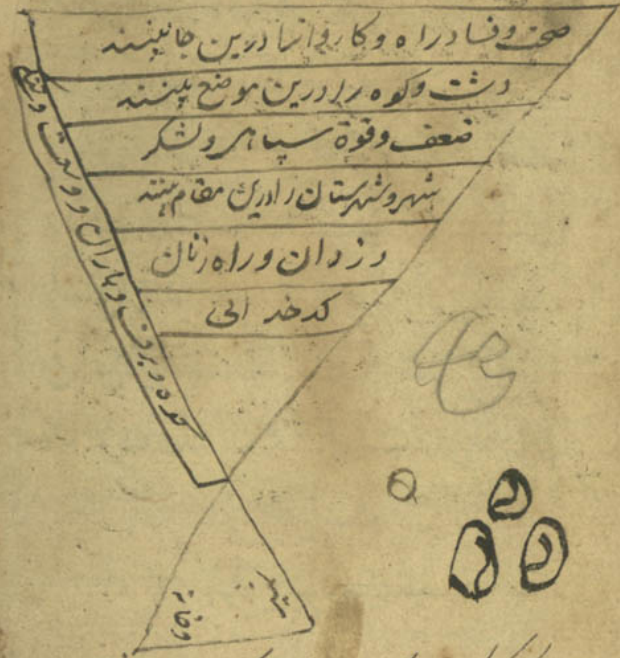 صحت و فساد راه و کاروانها درین جا بینند
دشت و کوه را درین موضع بینند
ضعف و قوة سپاهی و لشکر
شهر و شهرستان را درین مقام بینند
دزدان و راه زنان
کدخدائی
کوه و برف و باران و وسعت و
شهر
و خانه